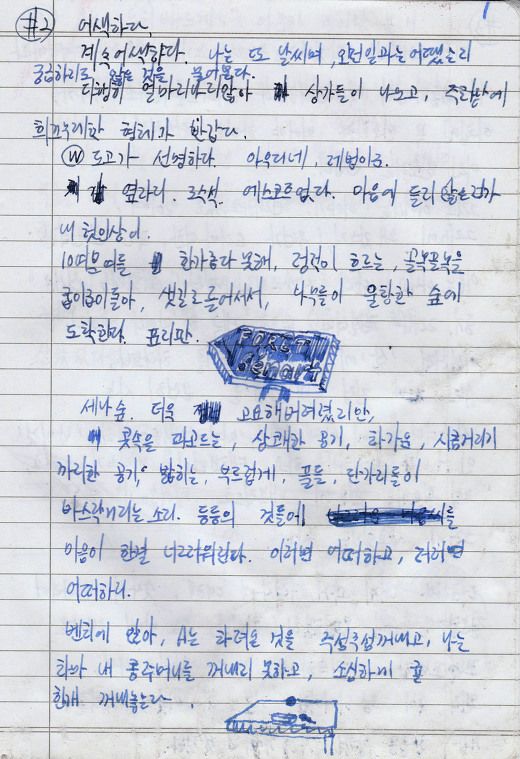 1
#2) 어색하다.
계속 어색하다. 나는 또 날씨며, 오던일과는 어땠는지
궁금하리도, 않은 것을 물어본다.
다행히 얼마리나리않아 상가들이 나오고, 주변에
희끄무레한 형체가 반갑다.
W 도고가 선명하다. 아우디네, 레벌이군.
옆라리. 조수석. 에스코트없다. 마음에 들리 않은건가
내 첫인상이.
10여분여를 한가롭다 못해, 정적이 흐르는, 골목골목을
굽이굽이돌아, 샛길로 들어서서, 나무들이 울창한 숲에
도착한다. 표리판.
FOREST
세나숲. 더욱 고요해버려렸리만,
콧속을 파고드는, 상쾌한 공기, 차가운, 시큼거리기
까리한 공기, 밟히는, 부드럽게, 풀들, 단가리들이
바스락거리는 소리. 등등의 것들에
마음이 한결 너그러워린다. 이러면 어떠하고, 러러면
어떠하리.
벤티에 앉아, A는 차려온 것을 주섬주섬꺼내고, 나는
차마 내 콩주머니를 꺼내리 못하고, 소심하게 귤
한개 꺼내놓는다.